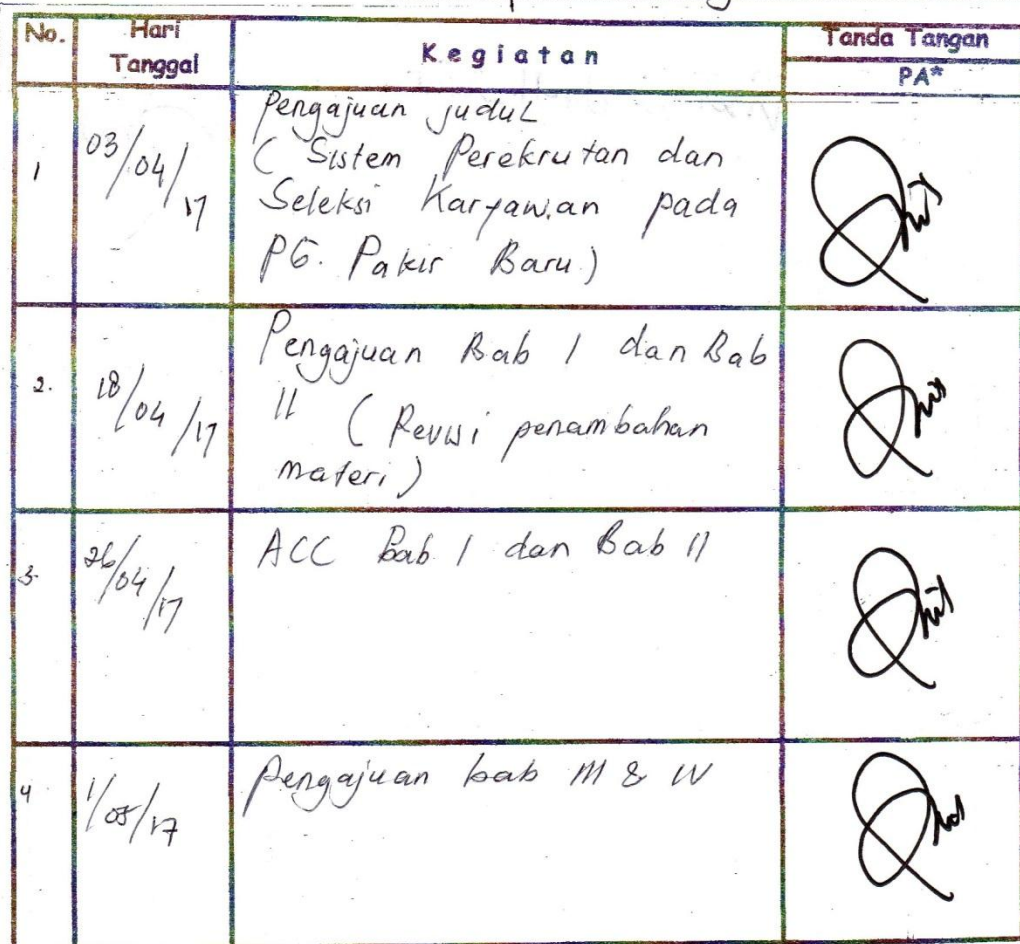 No. Hari Tanggal Kegiatan Tanda Tangan
PA*
1 03/04/17 Pengajuan judul
( Sistem Perekrutan dan
Seleksi Karyawan pada
PG. Pakis Baru)
2. 18/04/17 Pengajuan Bab I dan Bab
II ( Revisi penambahan
materi)
3. 26/04/17 ACC Bab I dan Bab II
4 1/05/17 Pengajuan bab III & IV